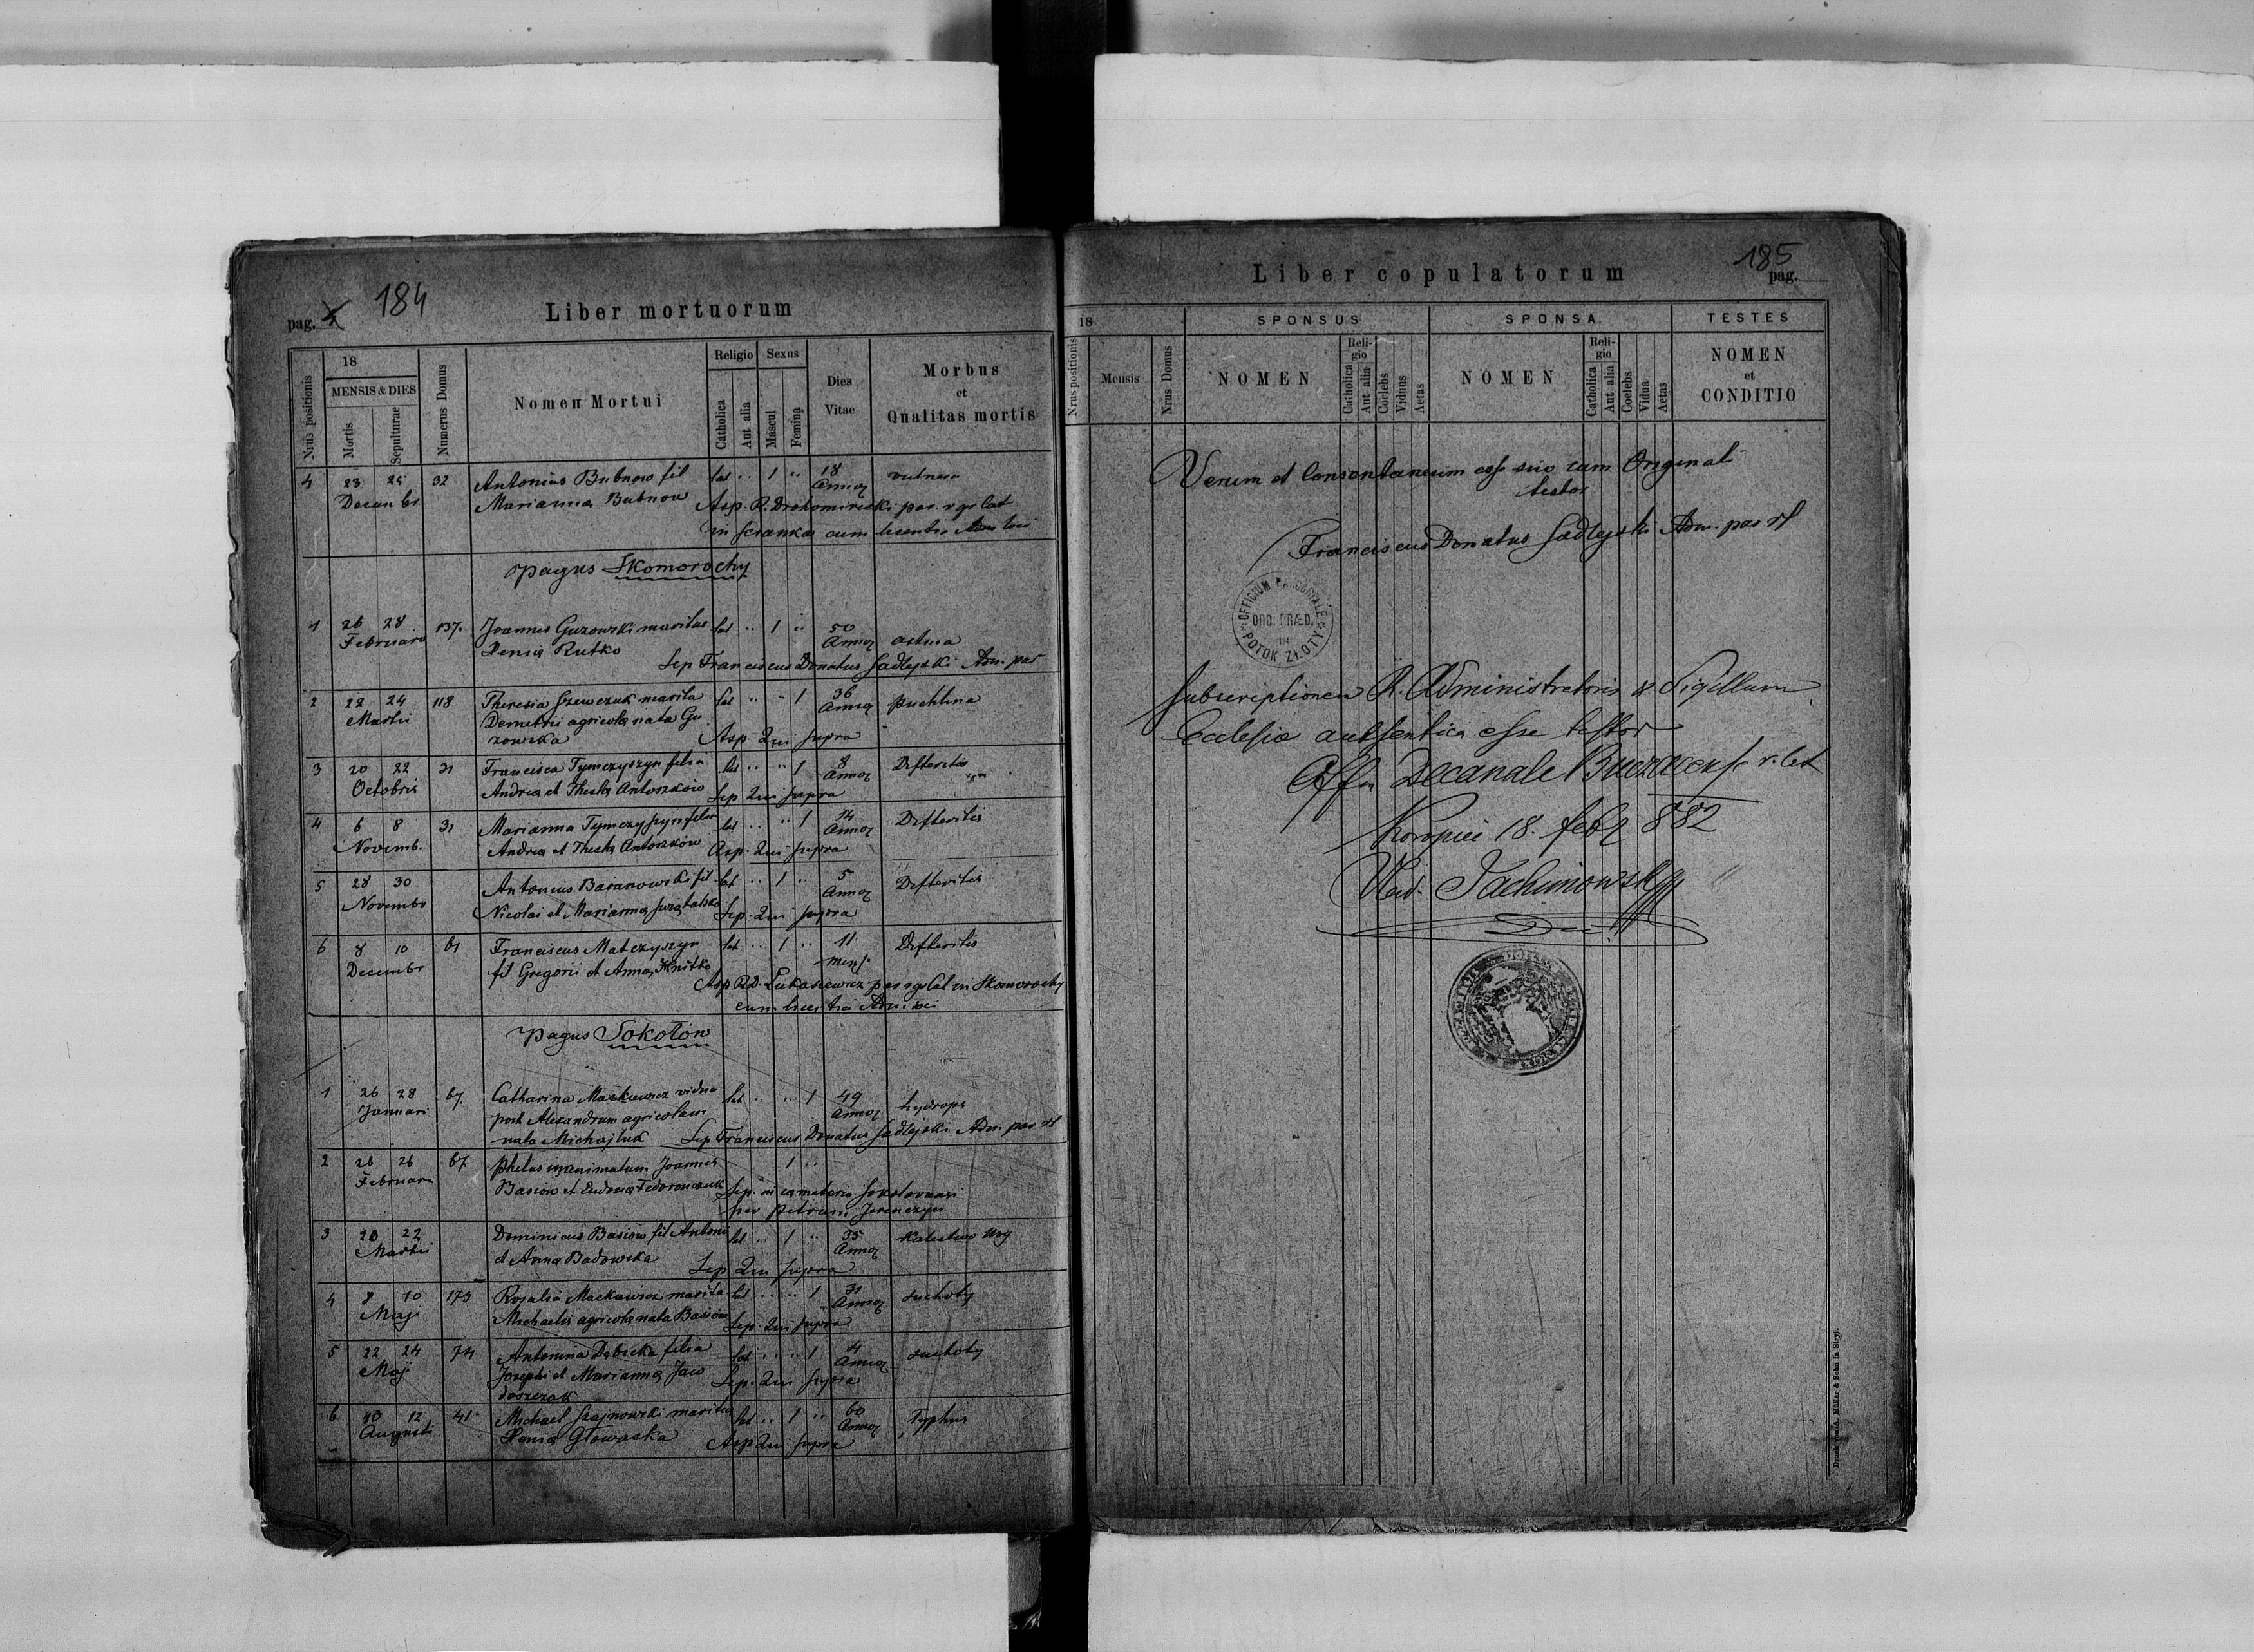 pag. 4 184
Liber mortuorum
Nrus positionis
18
MENSIS & DIES
Mortis
Sepulturae
Numerus Domus
Nomen Mortui
Religio
Catholica
Aut alia
Sexus
Mascul
Femina
Dies Vitae
Morbus et Qualitas mortis
4 23 25 32 Antonius Bubnow fil lat " 1 " 18 vulnera
Decembr Marianna Bubnow Annor
Asp. R. Drohomirecki par. r gr lat
in Scianka cum licentia Adm loci
pagus Skomorochy
1 26 28 137. Joannes Guzowski maritus lat " 1 " 50 astma
Februari Xenia Rutko Annor
Sep Franciscus Donatus Sadlejski Adm. par
2 22 24 118 Theresia Szewczuk marita lat " " 1 36 puchlina
Martii Demetrii agricola nata Gu Annor
zowska Asp. Qui supra
3 20 22 31 Francisca Tymczyszyn filia lat " " 1 8 Difteritis
Octobris Andrea et Thecla Antoszków Annor
Sep Qui supra
4 6 8 31 Marianna Tymczyszyn filia lat " " 1 14 Difteritis
Novemb. Andrea et Thecla Antoszków Annor
Asp. Qui supra
5 28 30 Antonius Baranowski fil lat " 1 " 5 Difteritis
Novembr Nicolai et Marianna Annor
Sep. Qui supra
6 8 10 61 Franciscus Matczyszyn lat " 1 " 11 Difteritis
Decembr fil Gregorii et Anna Hnitko mens.
Asp R.D. Łukasiewicz par r gr Cat in Skomorochy
cum licentia Adm loci
pagus Sokołów
1 26 28 67. Catharina Maćkiewicz vidua lat " " 1 49 hydrops
Januari post Alexandrum agricolam Annor
nata Michajluk Sep Franciscus Donatus Sadlejski Adm. par rl
2 26 26 67 phetus inanimatum Joannes 1 "
Februari Basiów et Eudoxia Fedoronczuk
Sep. in cœmeterio
per Petrum
3 20 22 Dominicus Basiów fil Antonii lat " 1 " 35
Martii et Anna Badowska Annor
Sep Qui supra
4 8 10 173 Rosalia Mackiewicz marita lat " " 1 31 suchoty
Maji Michaelis agricola nata Basiów Annor
Sep. Qui supra
5 22 24 74 Antonina Dębicka filia lat " " 1 4 suchoty
Maji Josephi et Marianna Jaw Annor
doszczak Sep. Qui supra
6 10 12 41 Michael Szajnowski maritus lat " 1 " 60 Typhus
Augusti Xenia Głowacka Annor
Asp Qui supra
Liber copulatorum
185
pag.
18
Nrus positionis
Mensis
Nrus Domus
SPONSUS
NOMEN
Religio
Catholica
Aut alia
Coelebs
Viduus
Aetas
SPONSA
NOMEN
Religio
Catholica
Aut alia
Coelebs
Vidua
Aetas
TESTES
NOMEN
et
CONDITIO
Verum et Consentaneum esse suo cum Originali
testor
Franciscus Donatus Sadlejski Adm. par rl
OFFICIUM PAROCHIALE
ORD. PRÆD.
IN
POTOK ZŁOTY
Subscriptionem R. Administratoris & Sigillum
Ecclesiæ authentica esse testor
Offm Decanale Buczacense r. lat
Koropiec 18. febr 882
Vlad. Jachimowski
Druk von A. Müller & Sohn in Stryj.